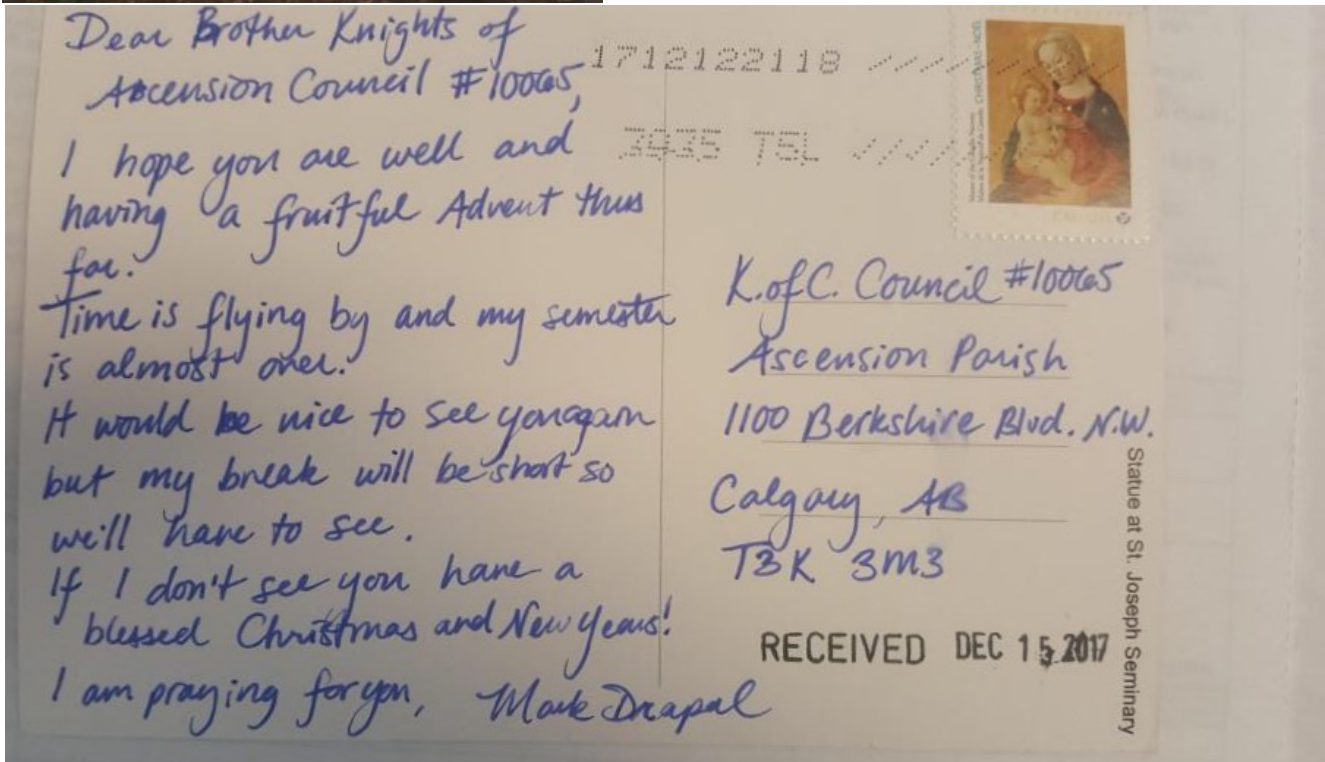 Dear Brother Knights of
Ascension Council #10065,
I hope you are well and
having a fruitful Advent thus
far.
Time is flying by and my semester
is almost over.
It would be nice to see you again
but my break will be short so
we'll have to see.
If I don't see you have a
blessed Christmas and New Years!
I am praying for you, Mark Drapal
1712122118
3935 T5L
CHRISTMAS · NOËL
K. of C. Council #10065
Ascension Parish
1100 Berkshire Blvd. N.W.
Calgary, AB
T3K 3M3
RECEIVED DEC 15 2017
Statue at St. Joseph Seminary